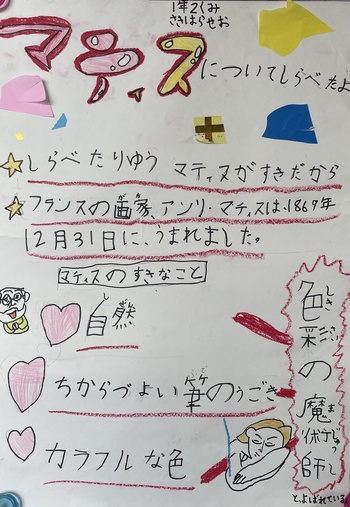 1年2くみ
さきはらせお
マティスについてしらべたよ
しらべたりゆう マティスがすきだから
フランスの画家、アンリ・マティスは、1869年
12月31日に、うまれました。
マティスのすきなこと
自然
ちからづよい筆のうごき
カラフルな色
色彩の魔術師
しきさい
まじゅつし
とよばれている